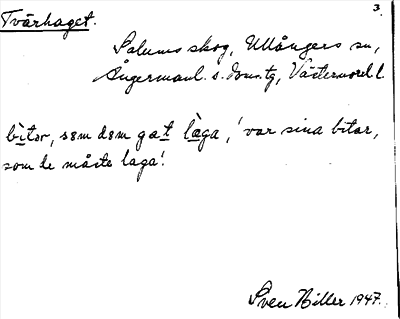 Tvärhaget.
3.
Salums skog, Ullångers sn,
Ångermanl. s. domsg, Västernorrl. l.
bìtər, sɘm dɘm gat làga, 'var sina bitar,
som de måste laga'.
Sven Hiller 1947.